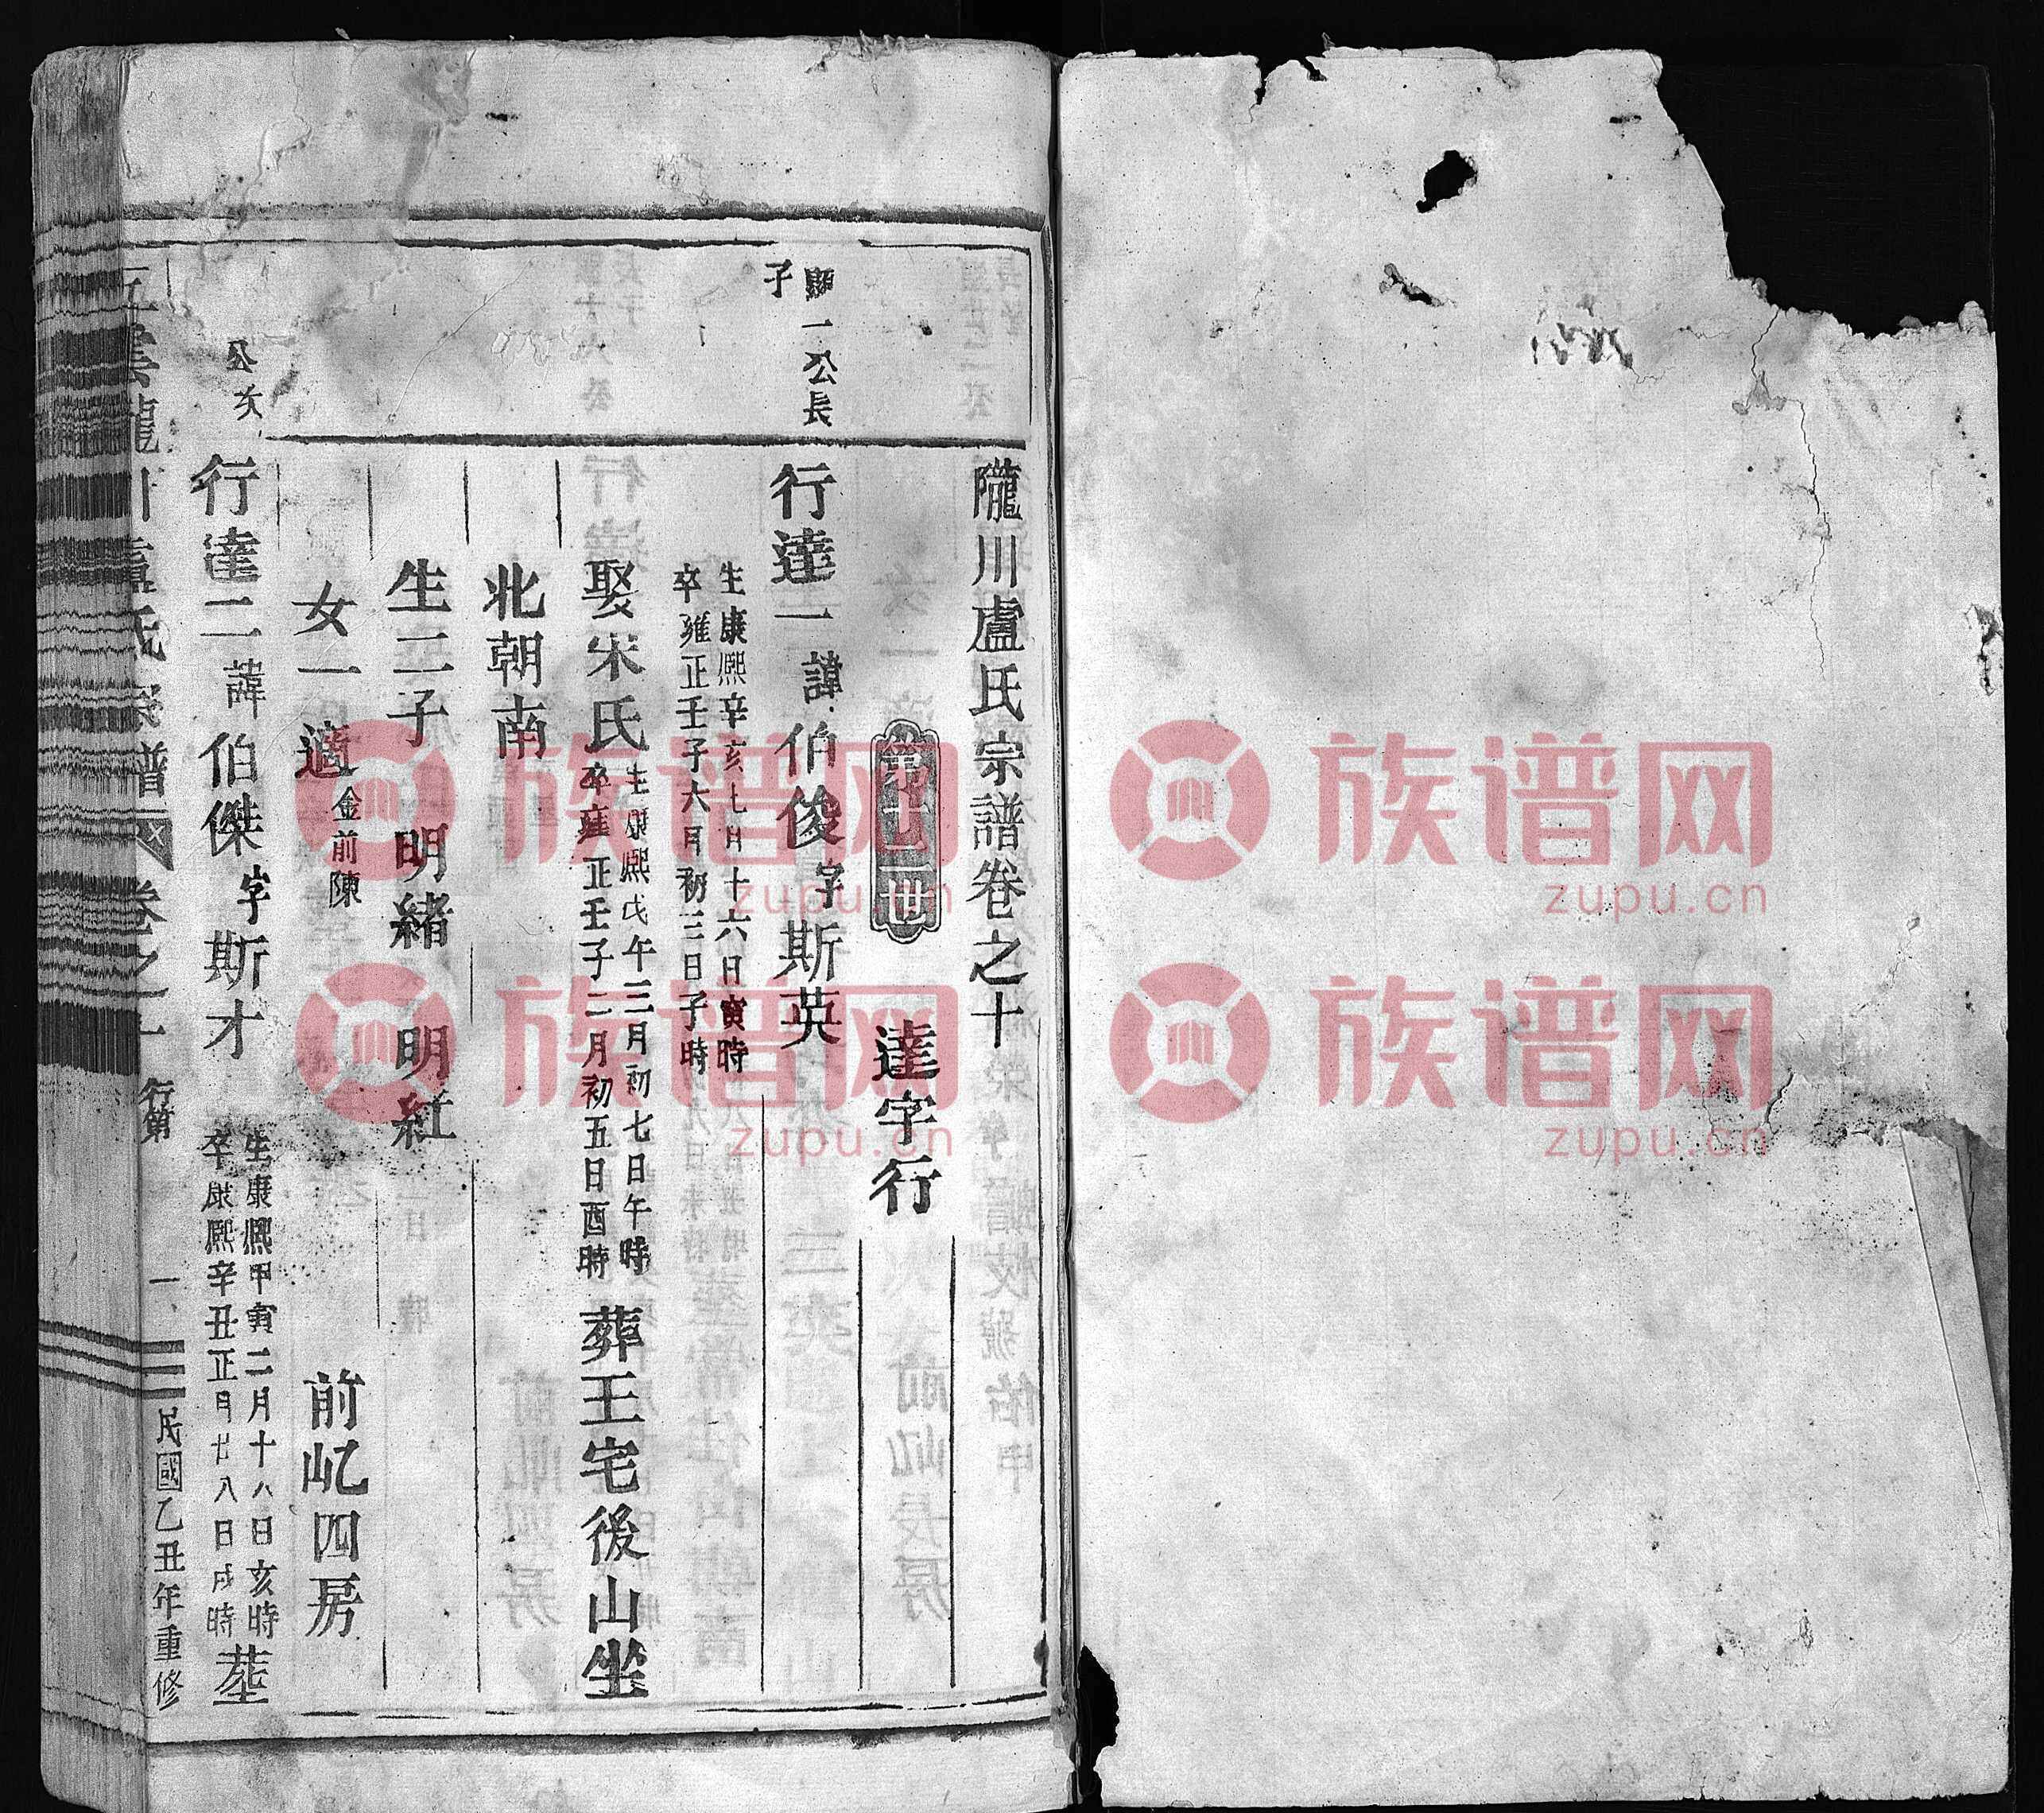 隴川盧氏宗譜卷之十
達字行
顯一公長
子
行達一諱伯俊字斯英
生康熙辛亥七月十六日寅時
卒雍正壬子六月初三日子時
娶宋氏
生康熙戊午三月初七日午時
卒雍正壬子二月初五日酉時
葬王宅後山坐
北朝南
生二子 明緒 明紅
女一適金前陳
前屹四房
公次
行達二諱伯傑字斯才
生康熙甲寅二月十八日亥時
卒康熙辛丑正月廿八日戌時
塟
氏宗譜
卷之十
行第
一
民國乙丑年重修
族谱网
zupu.cn
族谱网
zupu.cn
族谱网
zupu.cn
族谱网
zupu.cn